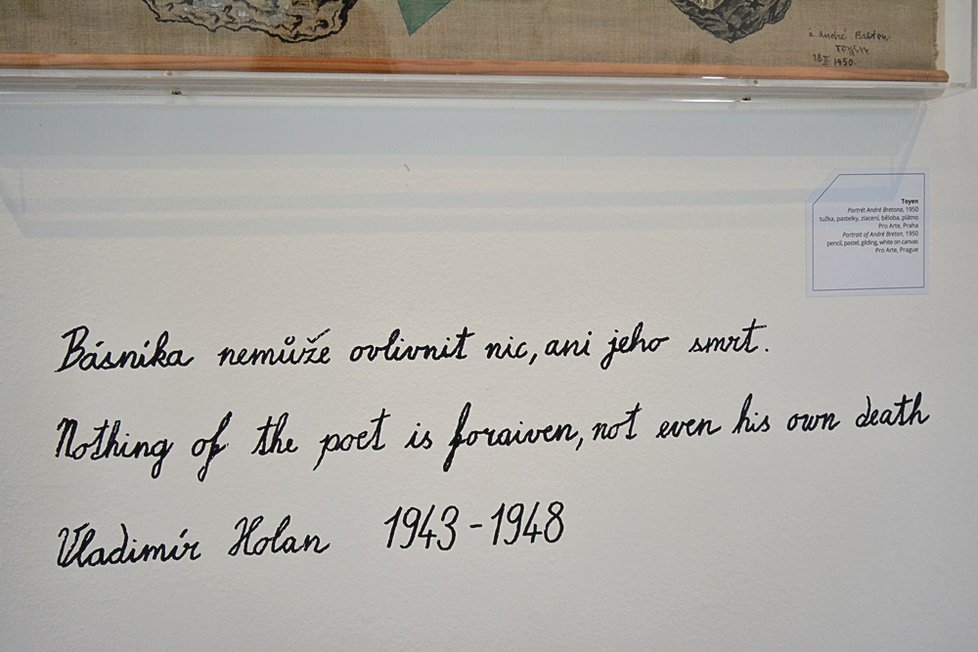 à André Breton
TOYEN
1950
Toyen
Portrét André Bretona, 1950
tužka, pastelky, zlacení, běloba, plátno
Pro Arte, Praha
Portrait of André Breton, 1950
pencil, pastel, gilding, white on canvas
Pro Arte, Prague
Básníka nemůže ovlivnit nic, ani jeho smrt.
Nothing of the poet is forgiven, not even his own death
Vladimír Holan 1943-1948